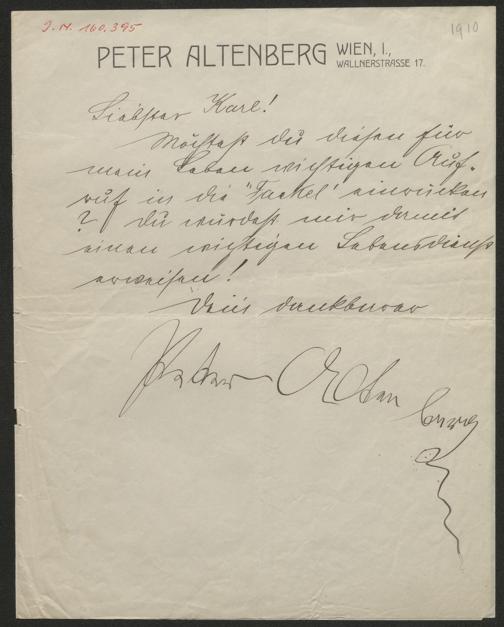 J.N. 160.395
1910
PETER ALTENBERG WIEN, I.,
WALLNERSTRASSE 17.
Liebster Karl!
Möchtest du diesen für
mein Leben wichtigen Auf-
ruf in die "Fackel" einrücken
? Du würdest mir damit
einen wichtigen Lebensdienst
erweisen!
Dein dankbarer
Peter Altenberg